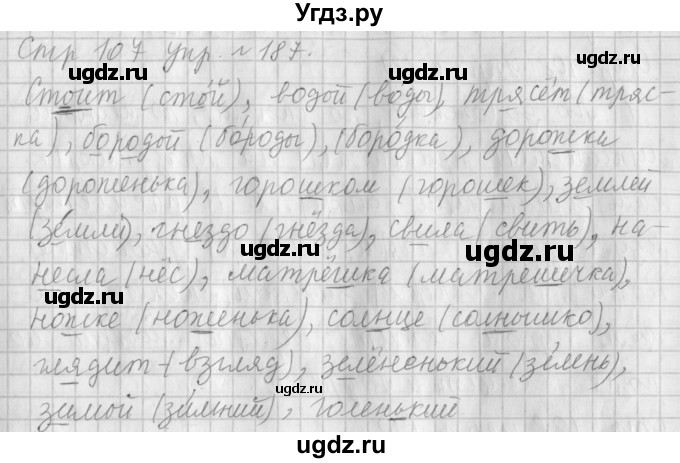 Угдз.ру
Стр 107 упр. № 187.
ugdz.ru ugdz.ru ugdz.ru
Стоит (стой), водой (воды), трясёт (тряс-
ка), бородой (бороды), (бородка), дорожка
ugdz.ru ugdz.ru
(дороженька), горошком (горошек), землёй
(земли), гнездо (гнёзда), свила (свить), на-
ugdz.ru ugdz.ru ugdz.ru
несла (нёс), матрёшка (матрешечка),
ножке (ноженька), солнце (солнышко),
ugdz.ru ugdz.ru
глядит - (взгляд), зелёненький (зелень),
ugdz.ru
зимой (зимний), голенький
ugdz.ru ugdz.ru
ugdz.ru